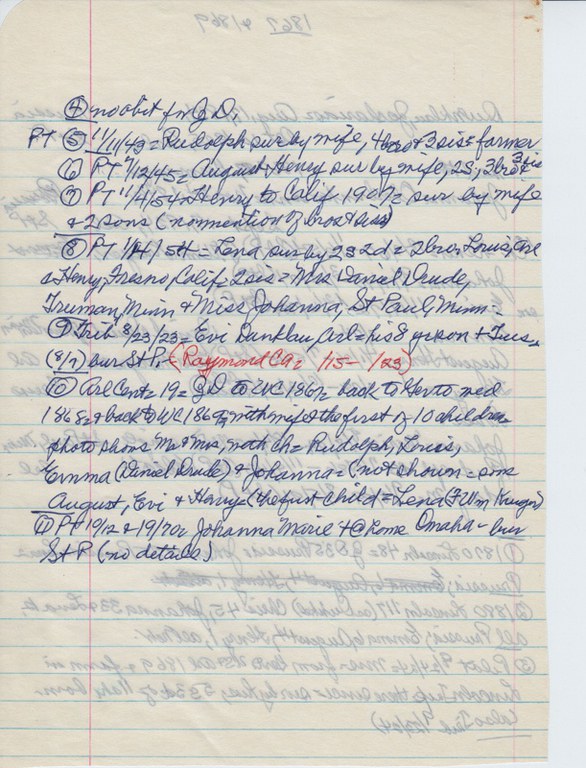 1867 & 1869
④ no obit for J D.
PT ⑤ 11/11/43 = Rudolph sur by wife, 4 bro & 3 sis = farmer
⑥ PT 9/12/45 = August Henry sur by wife, 2S, 3 bro 3 sis
⑦ PT 11/4/54 = Henry to Calif 1907 sur by wife
& 2 sons (no mention of bros & sis)
⑧ PT 1/14/54 = Lena sur by 2S 2d = 2 bro, Louis, Arl
& Henry, Fresno, Calif = 2 sis = Mrs Daniel Drude,
Truman, Minn & Miss Johanna, St Paul, Minn =
⑨ Trib 8/23/23 = Evi Dankleu, Arl = his 8 yr son + Tues
(8/7) bur St P. (Raymond Ca 1/15 - 1/23)
⑩ Arl Cent = 19 = J D to WC 1867 back to Ger to wed
1868 & back to WC 1869 with wife & the first of 10 children
photo shows Mr & Mrs, with ch = Rudolph, Louis,
Emma (Daniel Drude) & Johanna = (not shown = sons
August, Evi & Henry = (the first child = Lena (F Wm Krueger)
⑪ PT 19/12 & 19/70 Johanna Marie + @ home Omaha - bur
St P (no details)